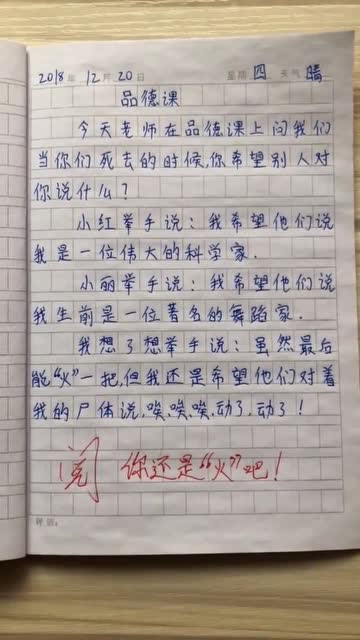 2018年12月20日 星期四 天气晴
品德课
今天老师在品德课上问我们
当你们死去的时候,你希望别人对
你说什么?
小红举手说:我希望他们说
我是一位伟大的科学家.
小丽举手说:我希望他们说
我生前是一位著名的舞蹈家.
我想了想举手说:虽然最后
能“火”一把,但我还是希望他们对着
我的尸体说,唉,唉,唉,动了,动了!
阅 你还是“火”吧!
评语: